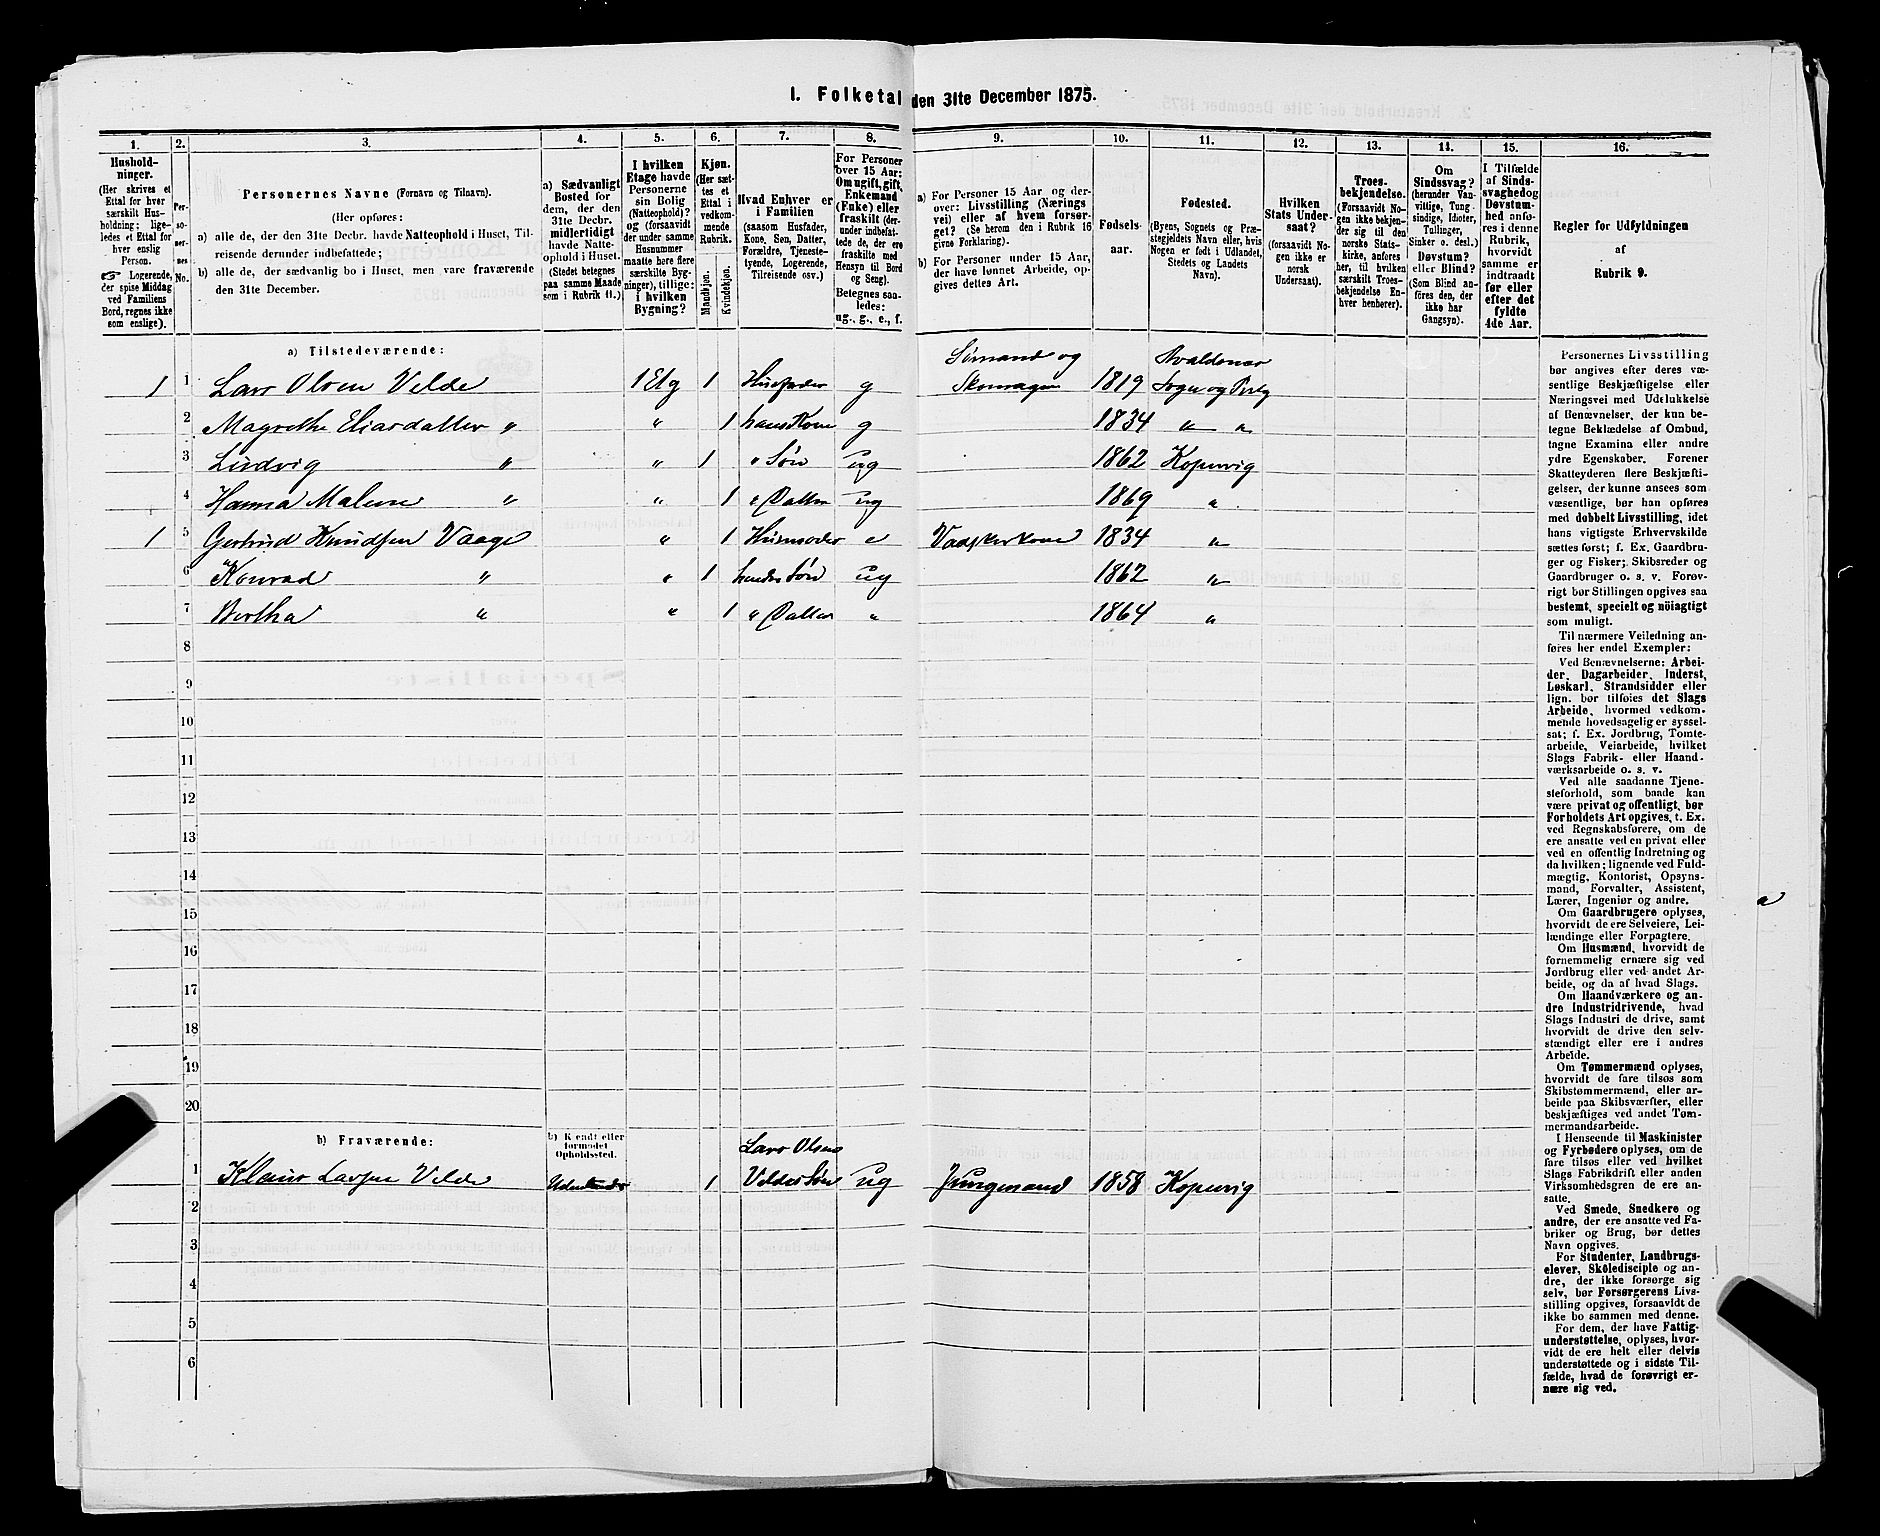 1. Folketal den 31te December 1875.
1. 2. 3. 4. 5. 6. 7. 8. 9. 10. 11. 12. 13. 14. 15. 16.
Hushold-
ninger.
(Her skrives et
Ettal for hver
særskilt Hus-
holdning; lige-
ledes et Ettal for
enslig
Person.
☞ Logerende,
der spise Middag
ved Familiens
Bord, regnes ikke
som enslige).
Per-
so-
ner-
nes
No.
Personernes Navne (Fornavn og Tilnavn).
(Her opføres:
a) alle de, der den 31te Decbr. havde Natteophold i Huset, Til-
reisende derunder indbefattede;
b) alle de, der sædvanlig bo i Huset, men vare fraværende
den 31te December.
a) Sædvanligt
Bosted for
dem, der den
31te Decbr.
midlertidigt
havde Natte-
ophold i Huset.
(Stedet betegnes
paa samme Maade
som i Rubrik 11.)
I hvilken
Etage havde
Personerne
sin Bolig
(Natteophold)?
og (forsaavidt
der under samme
Husnummer
maatte høre flere
særskilte Byg-
ninger), tillige:
i hvilken
Bygning?
Kjøn.
(Her sæt-
tes et
Ettal i
vedkom-
mende
Rubrik.
Mandkjøn.
Kvindekjøn.
Hvad Enhver er
i Familien
(saasom Husfader,
Kone, Søn, Datter,
Forældre, Tjeneste-
tyende, Logerende,
Tilreisende osv.)
For Personer
over 15 Aar:
Om ugift, gift,
Enkemand
(Enke) eller
fraskilt (der-
under indbefat-
tede de, der ere
fraskilte med
Hensyn til Bord
og Seng).
Betegnes saa-
ledes:
ug., g., e., f.
a) For Personer 15 Aar og der-
over: Livsstilling (Nærings
vei) eller af hvem forsør-
get? (Se herom den i Rubrik 16
givne Forklaring).
b) For Personer under 15 Aar,
der have lønnet Arbeide, op-
gives dettes Art.
Fødsels-
aar.
Fødested.
(Byens, Sognets og Præ-
stegjeldets Navn eller, hvis
Nogen er født i Udlandet,
Stedets og Landets
Navn).
Hvilken
Stats Under-
saat?
(forsaavidt No-
gen ikke er
norsk
Undersaat).
Troes-
bekjendelse.
(Forsaavidt No-
gen ikke bekjen-
der sig til den
norske Stats-
kirke, anføres
her, til hvilken
særskilt Troes-
bekjendelse En-
hver henhører).
Om
Sindssvag?
(herunder Van-
vittige, Tung-
sindige, Idioter,
Tullinger,
Sinker o. desl.)
Døvstum?
eller Blind?
(Som Blind an-
føres den, der
ikke har
Gangsyn).
I Tilfælde
af Sinds-
svaghed og
Døvstum-
hed anfø-
res i denne
Rubrik,
hvorvidt
samme er
indtraadt
før eller
efter det
fyldte
4de Aar.
Regler for Udfyldningen
af
Rubrik 9.
a) Tilstedeværende:
1 1 Lars Olsen Velde 1 Etg 1 Husfader g Sømand og Skomager 1819 Avaldsnæs Sogn og
2 Magrethe Eliasdatter " " 1 hans Kone g 1834 " "
3 Ludvig " " 1 " Søn ug 1862 Kopervig
4 Hanna Malene " " 1 " Datter ug 1869 "
1 5 Gertrud Knudsen Vaage " 1 Husmoder e Vaskerkone 1834 "
6 Konrad " " 1 hendes Søn ug 1862 "
7 Bertha " " 1 " Datter " 1864 "
8
9
10
11
12
13
14
15
16
17
18
19
20
b) Fraværende:
b) Kjendt eller
formodet
Opholdssted.
1 Klaus Larsen Velde Udenlands 1 Lars Olsens Veldes Søn ug Jungmand 1858 Kopervig
2
3
4
5
6
Personernes Livsstilling
bør angives efter deres væ-
sentlige Beskjæftigelse eller
Næringsvei med Udelukkelse
af Benævnelser, der kun be-
tegne Beklædelse af Ombud,
tagne Examina eller andre
ydre Egenskaber. Forener
Skatteyderen flere Beskjæfti-
gelser, der kunne ansees som
væsentlige, bør han opføres
med dobbelt Livsstilling, idet
hans vigtigste Erhvervskilde
sættes først; f. Ex. Gaardbru-
ger og Fisker; Skibsreder og
Gaardbruger o. s. v. Forøv-
rigt bør Stillingen opgives saa
bestemt, specielt og nöiagtigt
som muligt.
Til nærmere Veiledning an-
føres her endel Exempler:
Ved Benævnelserne: Arbei-
der, Dagarbeider, Inderst,
Løskarl, Strandsidder eller
lign. bør tilføies det Slags
Arbeide, hvormed vedkom-
mende hovedsagelig er syssel-
sat; f. Ex. Jordbrug, Tomte-
arbeide, Veiarbeide, hvilket
Slags Fabrik- eller Haand-
værksarbeide o. s. v.
Ved alle saadanne Tjene-
steforhold, som baade kan
være privat og offentligt, bør
Forholdets Art opgives, t. Ex.
ved Regnskabsførere, om de
ere ansatte ved en privat eller
ved en offentlig Indretning og
da hvilken; lignende ved Fuld-
mægtig, Kontorist, Opsyns-
mand, Forvalter, Assistent,
Lærer, Ingeniør og andre.
Om Gaardbrugere oplyses,
hvorvidt de ere Selveiere, Lei-
lændinge eller Forpagtere.
Om Husmænd, hvorvidt de
fornemmelig ernære sig ved
Jordbrug eller ved andet Ar-
beide, og da af hvad Slags.
Om Haandværkere og an-
dre Industridrivende, hvad
Slags Industri de drive, samt
hvorvidt de drive den selv-
stændigt eller ere i andres
Arbeide.
Om Tømmermænd oplyses,
hvorvidt de fare tilsøs som
Skibstømmermænd, eller ar-
beide paa Skibsværfter, eller
beskjæftiges ved andet Tøm-
mermandsarbeide.
I Henseende til Maskinister
og Fyrbødere oplyses, om de
fare tilsøs eller ved hvilket
Slags Fabrikdrift eller anden
Virksomhedsgren de ere an-
satte.
Ved Smede, Snedkere og
andre, der ere ansatte ved Fa-
briker og Brug, bør dettes
Navn opgives.
For Studenter, Landbrugs-
elever, Skoledisciple og an-
dre, der ikke forsørge sig
selv, bør Forsørgerens Livs-
stilling opgives, forsaavidt de
ikke bo sammen med denne.
For dem, der have Fattig-
understøttelse, oplyses, hvor-
vidt de ere helt eller delvis
understøttede og i sidste Til-
fælde, hvad de forøvrigt er-
nære sig ved.